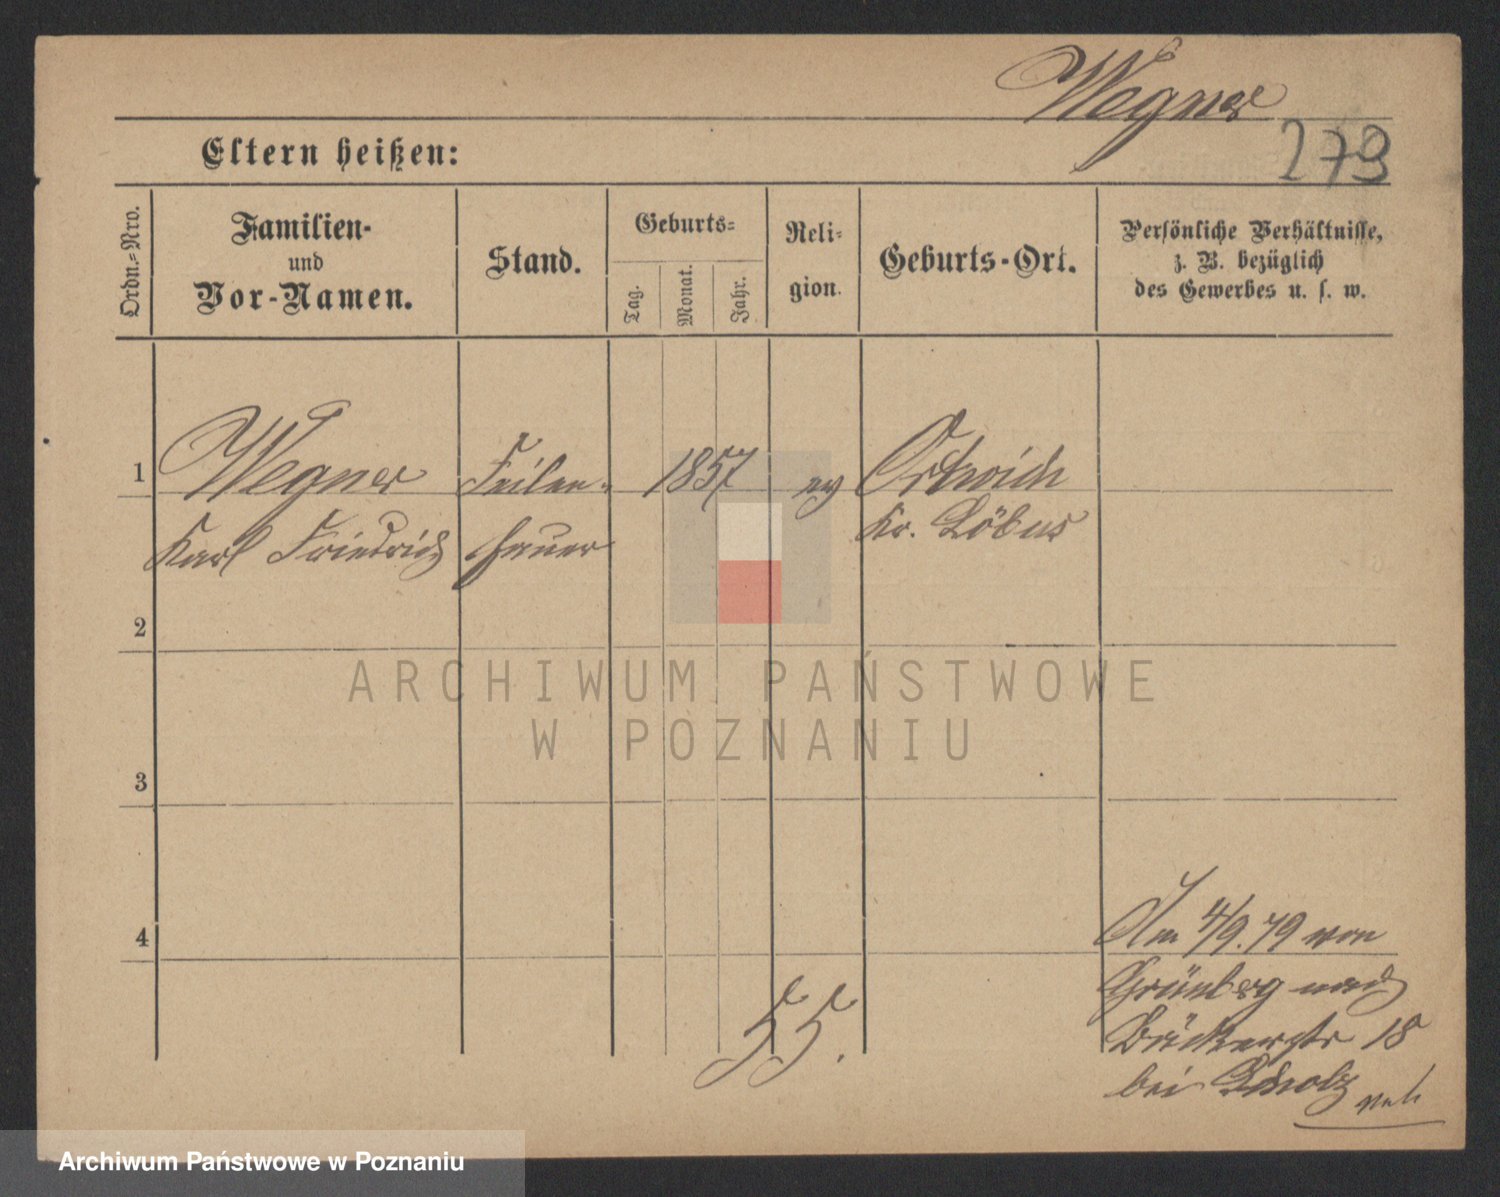 Wegner
279
Eltern heißen:
Ordn.-Nro.
Familien-
und
Vor-Namen.
Stand.
Geburts-
Tag.
Monat.
Jahr.
Reli-
gion.
Geburts-Ort.
Persönliche Verhältnisse,
z. B. bezüglich
des Gewerbes u. s. w.
1
Wegner Feilen- 1857 ev
Karl Friedrich hauer Kr. Löbus
2
ARCHIWUM PAŃSTWOWE
W POZNANIU
3
4
Am 4/9.79 von
Grünberg nach
Bäckerstr 18
bei Scholz
55.
Archiwum Państwowe w Poznaniu